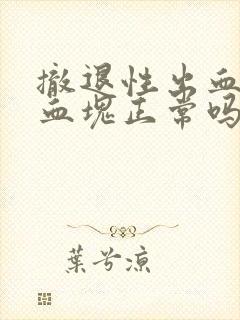 撤退性出血
血块正常吗
葉兮涼